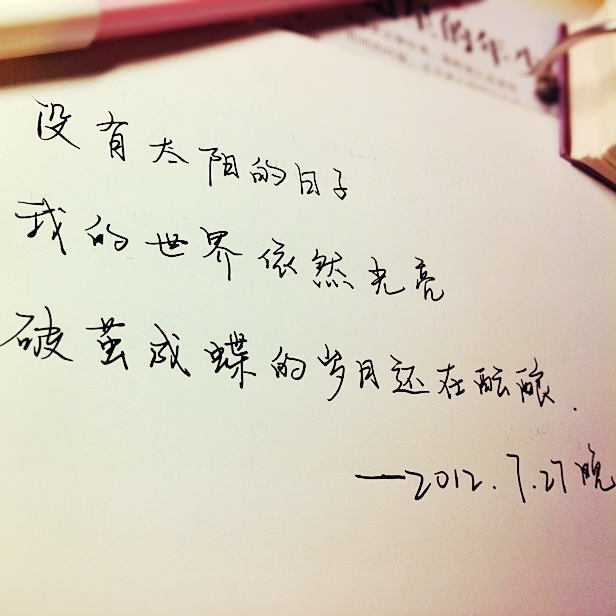 没有太阳的日子
我的世界依然光亮
破茧成蝶的岁月还在酝酿.
—2012.7.27晚